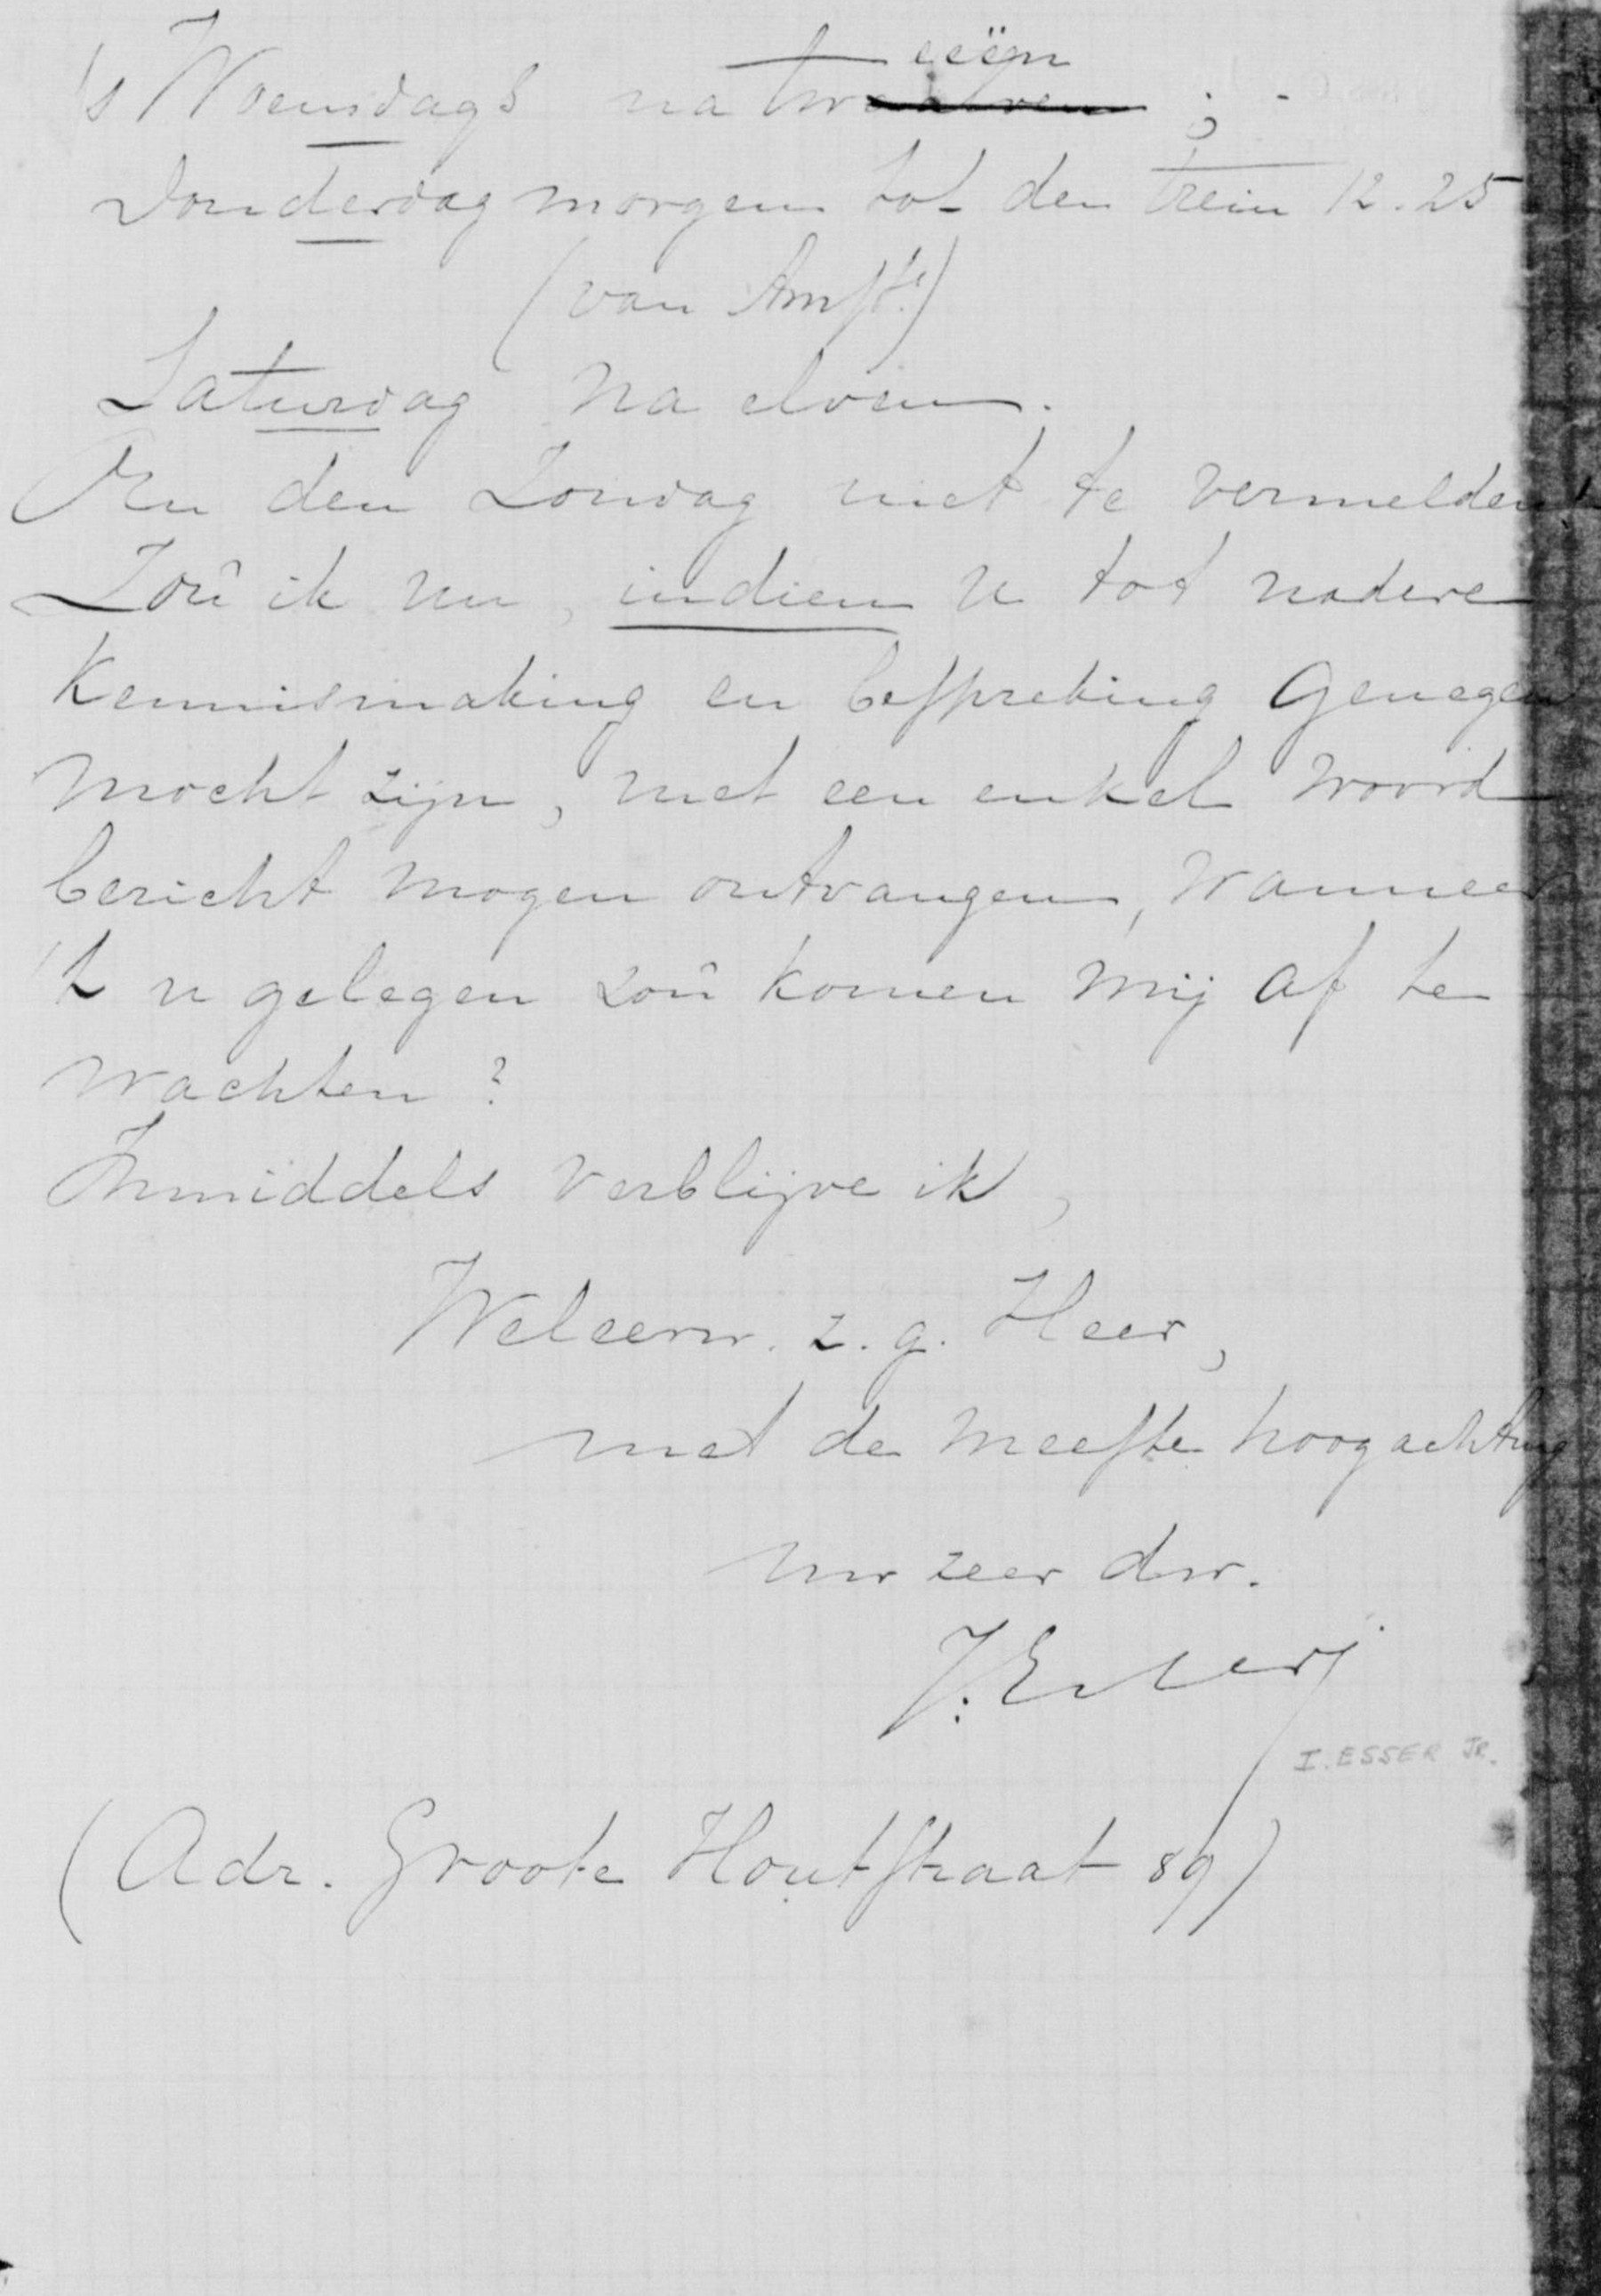 's Woensdags na twaalven eeën ;
Donderdag morgen tot den trein 12.25
(van Amst.)
Saturdag na elven.
Om den Zondag niet te vermelden!
Zoû ik nu, indien u tot nadere
kennismaking en bespreking genegen
mocht zijn, met een enkel woord
bericht mogen ontvangen, wanneer
't u gelegen zoû komen mij af te
wachten?
Inmiddels verblijve ik,
Weleerw. z. g. Heer,
met de meeste hoogachting
uw zeer dw.
I. Esserj
I. ESSER JR.
(Adr. Groote Houtstraat 89)